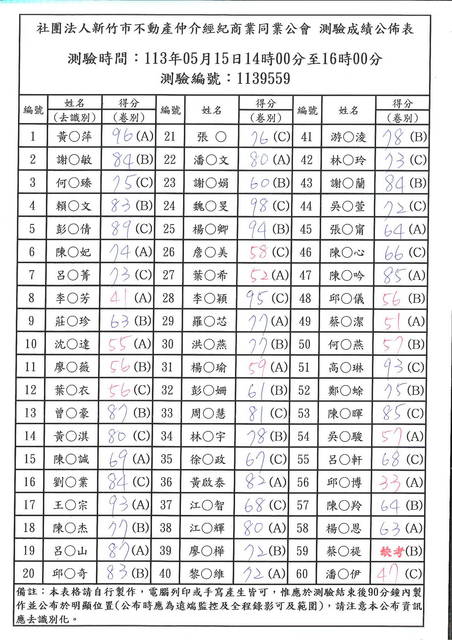 社團法人新竹市不動產仲介經紀商業同業公會 測驗成績公佈表
測驗時間：113年05月15日14時00分至16時00分
測驗編號：1139559
編號 姓名(去識別) 得分(卷別) 編號 姓名 得分(卷別) 編號 姓名 得分(卷別)
1 黃○萍 96(A) 21 張 ○ 76(C) 41 游○淩 78(B)
2 謝○敏 84(B) 22 潘○文 80(A) 42 林○玲 73(C)
3 何○臻 75(C) 23 謝○娟 60(B) 43 謝○蘭 84(B)
4 賴○文 83(B) 24 魏○旻 98(C) 44 吳○萱 72(C)
5 彭○倩 89(C) 25 楊○卿 94(B) 45 張○甯 64(A)
6 陳○妃 74(A) 26 詹○美 58(C) 46 陳○心 66(C)
7 呂○菁 73(C) 27 葉○希 52(A) 47 陳○吟 85(A)
8 李○芳 41(A) 28 李○穎 95(C) 48 邱○儀 56(B)
9 莊○珍 63(B) 29 羅○芯 77(A) 49 蔡○潔 51(A)
10 沈○達 55(A) 30 洪○燕 77(B) 50 何○燕 57(B)
11 廖○薇 56(B) 31 楊○瑜 59(A) 51 高○琳 93(C)
12 葉○衣 56(C) 32 彭○姍 61(B) 52 鄭○蜍 75(B)
13 曾○豪 87(B) 33 周○慧 81(C) 53 陳○暉 85(C)
14 黃○淇 80(C) 34 林○宇 78(B) 54 吳○駿 57(A)
15 陳○誠 69(A) 35 徐○政 67(C) 55 呂○軒 68(C)
16 劉○業 84(C) 36 黃啟泰 82(A) 56 邱○博 33(A)
17 王○宗 93(A) 37 江○智 68(C) 57 陳○羚 64(B)
18 陳○杰 77(B) 38 江○輝 80(A) 58 楊○恩 63(A)
19 呂○山 87(A) 39 廖○樺 72(B) 59 蔡○楻 缺考(B)
20 邱○奇 83(B) 40 黎○維 72(A) 60 潘○伊 47(C)
備註：本表格請自行製作，電腦列印或手寫產生皆可，惟應於測驗結束後90分鐘內製
作並公布於明顯位置(公布時應為遠端監控及全程錄影可及範圍)，請注意本公布資訊
應去識別化。